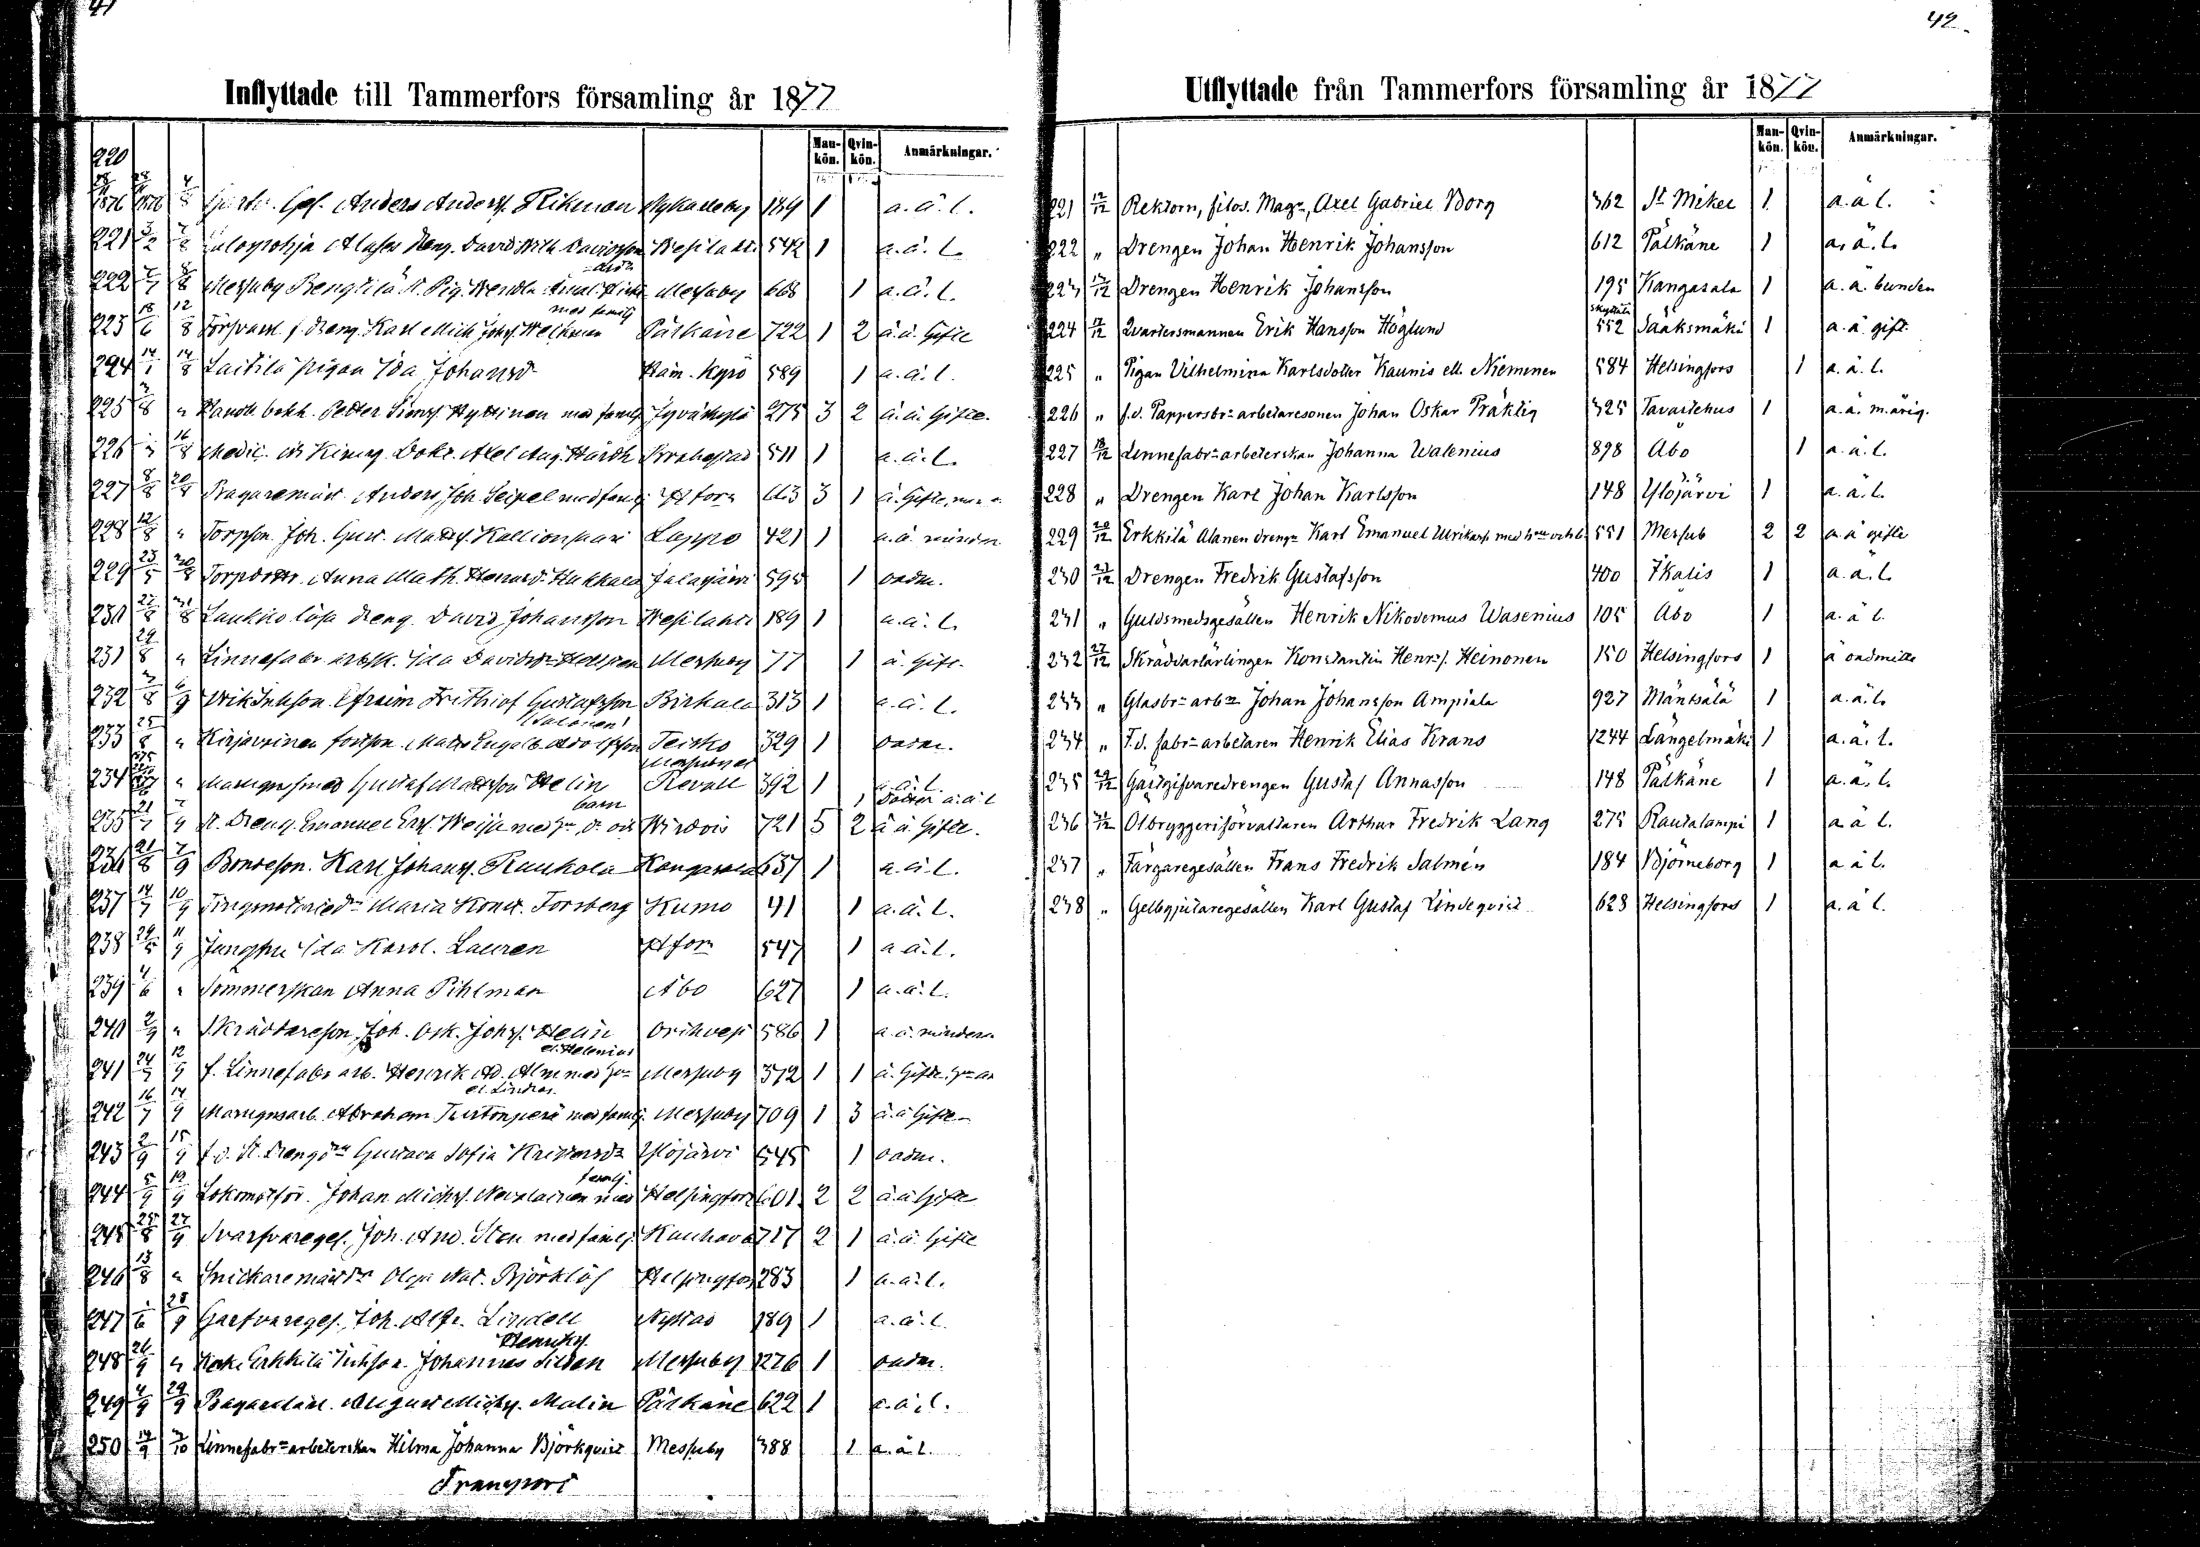 41
Inflyttade till Tammerfors församling år 1877
Mankön. Qvinkön. Anmärkningar.
220 1876 1876 8 Ges. Anders Anders. Rikman Nykarleby 189 1 a.ä.l.
221 7/8 dreng. David Wilh. Davidsson Vesilahti 542 1 a.ä.l.
222 8/8 Messuby Pig. Messuby 668 1 a.ä.l.
med familj
223 18/6 12/8 f. dreng. Karl Mich. Johs. Weckman Pälkäne 722 1 2 a.ä. Gifte
224 14/8 Laitila pigan Ida Johansd. Ham. Kyrö 589 1 a.ä.l.
225 3/8 " Handl. bokh. Petter Simons. Hyttinen med familj Jyväskylä 275 3 2 a.ä. Gifte.
226 16/8 Medic. och Kirurg. Dokt. Axel Aug. Hårdh Brahestad 511 1 a.ä.l.
227 8/8 20/8 Bagaremäst. Anders Joh. Seipel med familj Hfors 613 3 1 ä. Gifte
228 12/8 " Torpson. Joh. Gust. Matts. Kallionpää Lappo 421 1 a.ä. minder
229 23/5 20/8 Torpdottr. Anna Math. Henrisd. Hukkala Jalasjärvi 595 1 oadm.
230 27/8 21/8 Laukko lösa dreng. David Johansson Vesilahti 189 1 a.ä.l.
231 29/8 " Linnefabr. arbsk. Ida Davidsdr. Messuby 77 1 ä. Gift.
232 3/8 6/9 Efraim Frithiof Gustafsson Birkala 313 1 a.ä.l.
(Salonen)
233 25/8 " Kirjavainen Matts Adolfsson Teisko 329 1 oadm.
Messuby
234 " Gustaf Mattsson Helin Revall 392 1 a.ä.l.
barn 1 Dotter a.ä.l
235 21/7 7/9 St. Dreng. Emanuel Weija med Virdois 721 5 2 a.ä Gifte.
236 21/8 7/9 Bondeson. Karl Johans. Raukola Kangasala 637 1 a.ä.l.
237 14/7 10/9 Maria Konst. Forsberg Kumo 41 1 a.ä.l.
238 29/5 11/9 Jungfru Ida Karol. Lauren Hfors 547 1 a.ä.l.
239 4/6 " Sömmerskan Anna Pihlman Åbo 627 1 a.ä.l.
240 2/9 " Skräddareson Joh. Osk. Johs. Helin Orihvesi 586 1 a.ä. minder
el. Helenius
241 24/7 12/9 f. Linnefabr. arb. Henrik Ad. Alm med Messuby 372 1 1 ä. Gifte
el. Lindros
242 16/7 14/9 Abraham Turtonperä med familj. Messuby 709 1 3 a.ä Gifte
243 2/9 15/9 f.d. St. Drengdr. Gustava Sofia Kristersdr. Ylöjärvi 545 1 oadm.
familj.
244 5/9 19/9 Lokomotför. Johan Michs. Nevalainen med Helsingfors 601 2 2 a.ä Gifte
245 25/8 27/9 Svarfvareges. Joh. And. Sten med familj. Kauhava 717 2 1 a.ä. Gifte
246 13/8 " Snickaremästdr. Olga Nat. Björklöf Helsingfors 283 1 a.ä.l.
247 28/9 Garfvareges. Joh. Alfr. Lindell Nystad 189 1 a.ä.l.
Henriks.
248 26/9 " Erkkilä Johannes Silden Messuby 1276 1 oadm.
249 4/9 29/9 Bagarelärl. August Michs. Malin Pälkäne 622 1 a.ä.l.
250 14/9 3/10 Linnefabr=arbeterskan Hilma Johanna Björkqvist Messuby 388 1 a.ä.l.
Transport
42.
Utflyttade från Tammerfors församling år 1877
Mankön. Qvinkön. Anmärkningar.
221 12/12 Rektorn, filos. Magr, Axel Gabriel Borg 362 St Mikel 1 a.ä l.
222 " Drengen Johan Henrik Johansson 612 Pälkäne 1 a.ä.l.
223 13/12 Drengen Henrik Johansson 195 Kangasala 1 a.ä. bunden
224 17/12 Qvartersmannen Erik Hansson Höglund 552 Sääksmäki 1 a.ä gift.
225 " Pigan Vilhelmina Karlsdotter Kaunis ell. Nieminen 584 Helsingfors 1 a.ä.l.
226 " f.d. Pappersbr=arbetaresonen Johan Oskar Präktig 325 Tavastehus 1 a.ä. m.årig.
227 18/12 Linnefabr=arbeterskan Johanna Walenius 898 Åbo 1 a.ä.l.
228 " Drengen Karl Johan Karlsson 148 Ylöjärvi 1 a.ä.l.
229 20/12 Erkkilä Alanen drengn Karl Emanuel Ulrikas. med hu och b. 551 Messub 2 2 a.ä gifte
230 21/12 Drengen Fredrik Gustafsson 400 Ikalis 1 a.ä.l.
231 " Guldsmedsgesällen Henrik Nikodemus Wasenius 105 Åbo 1 a.ä l.
232 27/12 Skräddarlärlingen Konstantin Henrs. Heinonen 150 Helsingfors 1 ä oadmitte
233 " Glasbr=arbn Johan Johansson Ampiala 927 Mäntsälä 1 a.ä.l.
234 " F.d. fabr=arbetaren Henrik Elias Krans 1244 Längelmäki 1 a.ä.l.
235 29/12 Gästgifvaredrengen Gustaf Annasson 148 Pälkäne 1 a.ä.l.
236 31/12 Ölbryggeriförvaltaren Arthur Fredrik Lang 275 Rautalampi 1 a.ä l.
237 " Färgaregesällen Frans Fredrik Salmén 184 Björneborg 1 a ä l.
238 " Gelbgjutaregesällen Karl Gustaf Lindeqvist 628 Helsingfors 1 a.ä l.